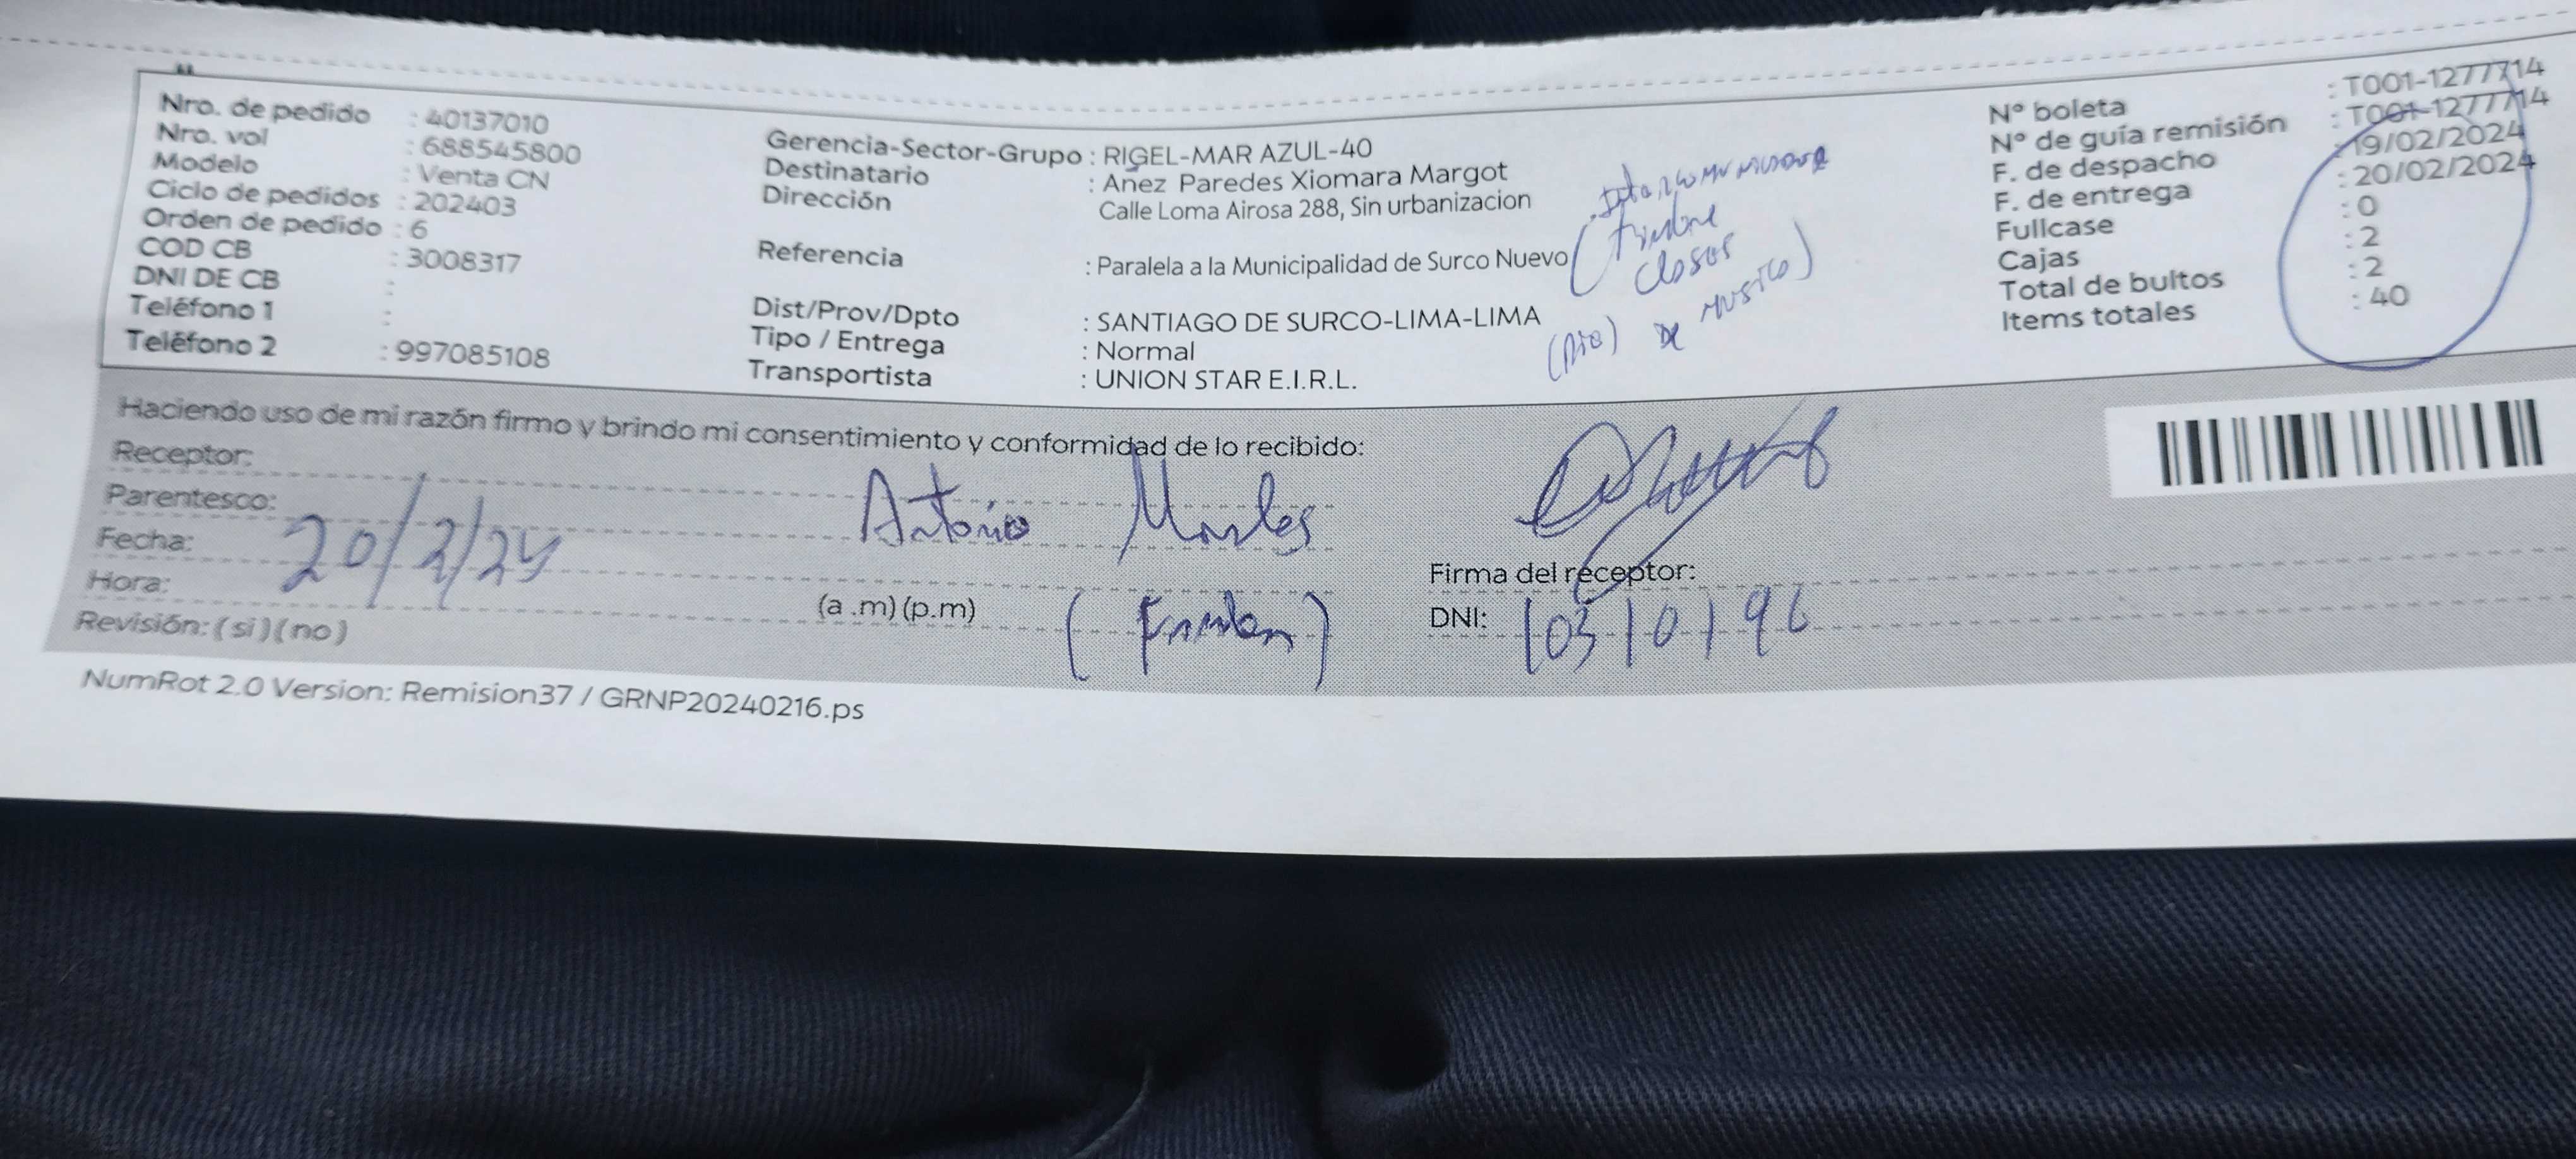 Nro. de pedido : 40137010
Nro. vol : 688545800
Modelo : Venta CN
Ciclo de pedidos : 202403
Orden de pedido : 6
COD CB : 3008317
DNI DE CB :
Teléfono 1 :
Teléfono 2 : 997085108
Gerencia-Sector-Grupo : RIGEL-MAR AZUL-40
Destinatario : Añez Paredes Xiomara Margot
Dirección Calle Loma Airosa 288, Sin urbanizacion
Referencia : Paralela a la Municipalidad de Surco Nuevo
Dist/Prov/Dpto : SANTIAGO DE SURCO-LIMA-LIMA
Tipo / Entrega : Normal
Transportista : UNION STAR E.I.R.L.
Closos
De musico)
Nº boleta : T001-1277714
Nº de guía remisión : T001-1277714
F. de despacho : 19/02/2024
F. de entrega : 20/02/2024
Fullcase : 0
Cajas : 2
Total de bultos : 2
Items totales : 40
Haciendo uso de mi razón firmo y brindo mi consentimiento y conformidad de lo recibido:
Receptor:
Parentesco: Antonio
Fecha: 20/2/24
Hora: (a .m) (p.m)
Revisión: ( si ) ( no )
Firma del receptor:
DNI:
NumRot 2.0 Version: Remision37 / GRNP20240216.ps